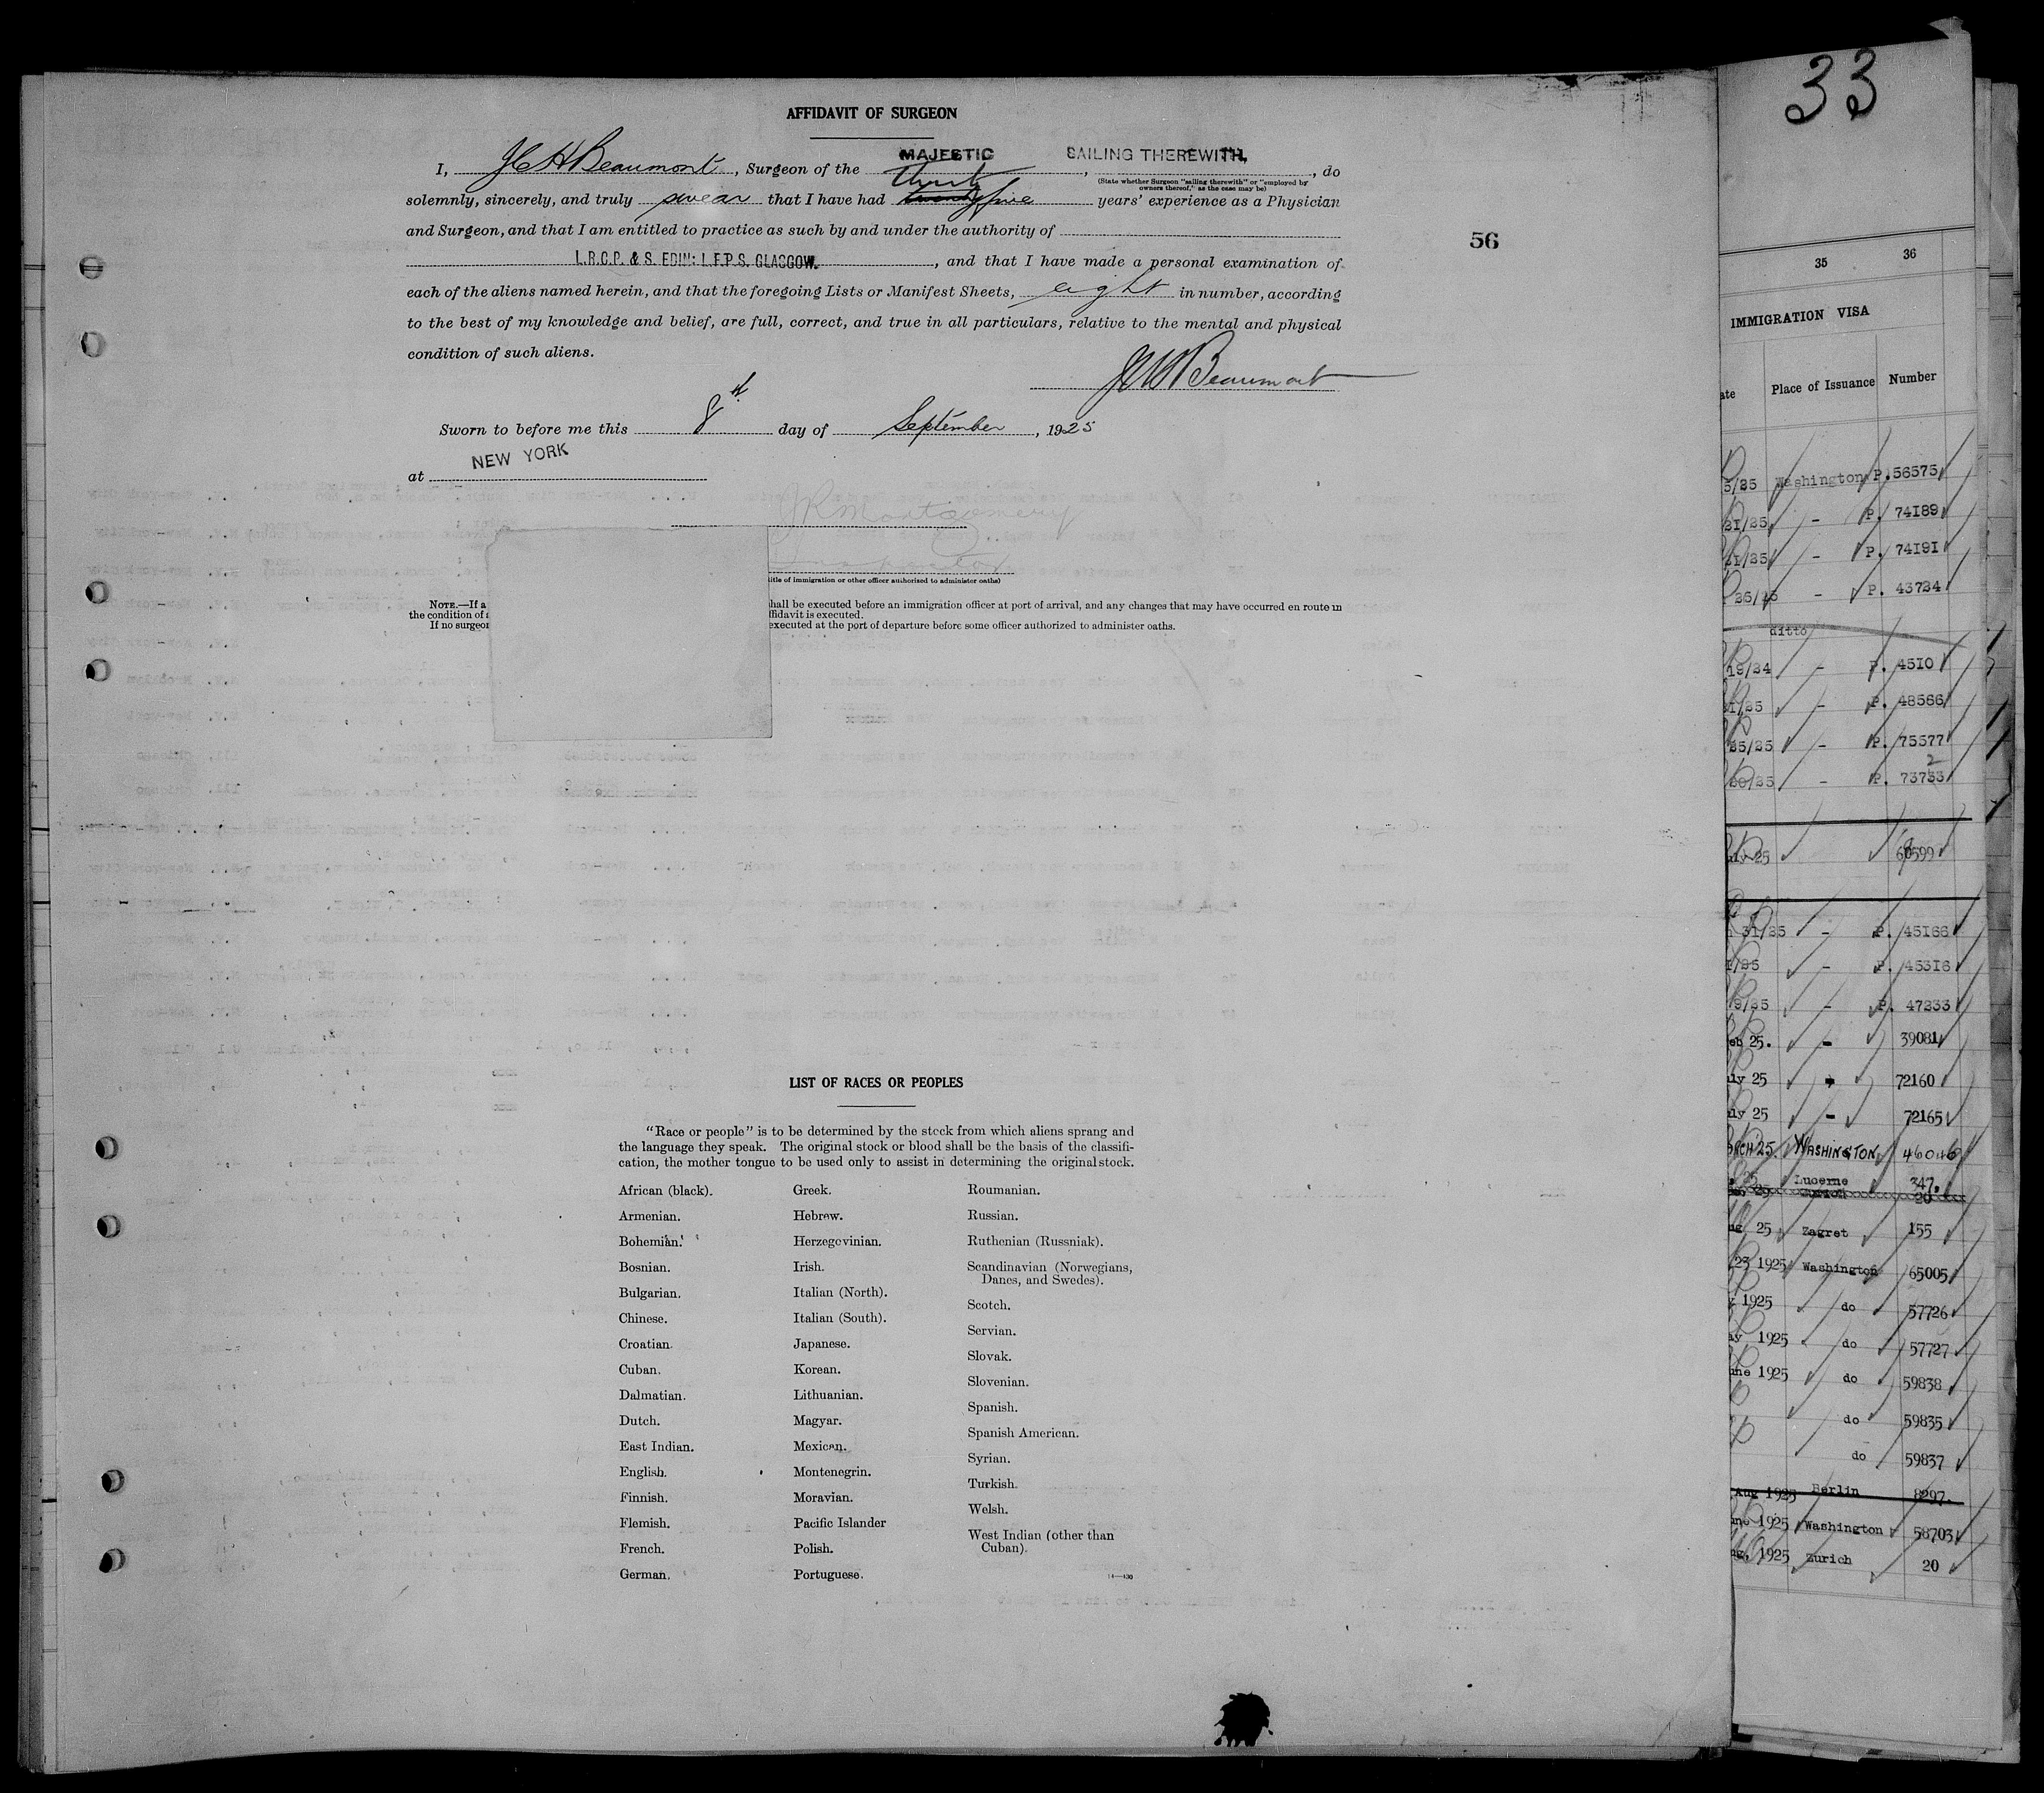 33
AFFIDAVIT OF SURGEON
MAJESTIC SAILING THEREWITH,
I, J C H Beaumont, Surgeon of the , , do
(State whether Surgeon "sailing therewith" or "employed by
owners thereof," as the case may be)
thirty
solemnly, sincerely, and truly swear that I have had twenty five years' experience as a Physician
and Surgeon, and that I am entitled to practice as such by and under the authority of
L.R.C.P. & S. EDIN: L.F.P.S. GLASGOW. , and that I have made a personal examination of
56
each of the aliens named herein, and that the foregoing Lists or Manifest Sheets, eight in number, according
to the best of my knowledge and belief, are full, correct, and true in all particulars, relative to the mental and physical
condition of such aliens.
J C H Beaumont
Sworn to before me this 8th day of September, 1925
at NEW YORK
J R Montgomery
Inspector
title of immigration or other officer authorized to administer oaths)
NOTE.—If a shall be executed before an immigration officer at port of arrival, and any changes that may have occurred en route in
the condition of ffidavit is executed.
If no surgeon executed at the port of departure before some officer authorized to administer oaths.
LIST OF RACES OR PEOPLES
"Race or people" is to be determined by the stock from which aliens sprang and
the language they speak. The original stock or blood shall be the basis of the classifi-
cation, the mother tongue to be used only to assist in determining the original stock.
African (black).
Armenian.
Bohemian.
Bosnian.
Bulgarian.
Chinese.
Croatian.
Cuban.
Dalmatian.
Dutch.
East Indian.
English.
Finnish.
Flemish.
French.
German.
Greek.
Hebrew.
Herzegovinian.
Irish.
Italian (North).
Italian (South).
Japanese.
Korean.
Lithuanian.
Magyar.
Mexican.
Montenegrin.
Moravian.
Pacific Islander
Polish.
Portuguese.
Roumanian.
Russian.
Ruthenian (Russniak).
Scandinavian (Norwegians,
Danes, and Swedes).
Scotch.
Servian.
Slovak.
Slovenian.
Spanish.
Spanish American.
Syrian.
Turkish.
Welsh.
West Indian (other than
Cuban).
14—430
35 36
IMMIGRATION VISA
ate Place of Issuance Number
5/25 Washington P. 56575
21/25 - P. 74189
21/25 - P. 74191
26/25 - P. 43724
ditto
19/24 - P. 4510
1/25 - P. 48566
25/25 - P. 75577
20/25 - P. 73733
2
uly 25 599
31/25 - P. 45166
/25 - P. 45316
9/25 - P. 47233
eb 25. - 39081
uly 25 - 72160
uly 25 - 72165
RCH 25. WASHINGTON 46046
25 Lucerne 347.
25 Zurich 20
ug 25 Zagret 155
23 1925 Washington 65005
y 1925 do 57726
ay 1925 do 57727
une 1925 do 59838
do 59835
do 59837
Aug 1925 Berlin 8297.
une 1925 Washington 58703
ug, 1925 Zurich 20